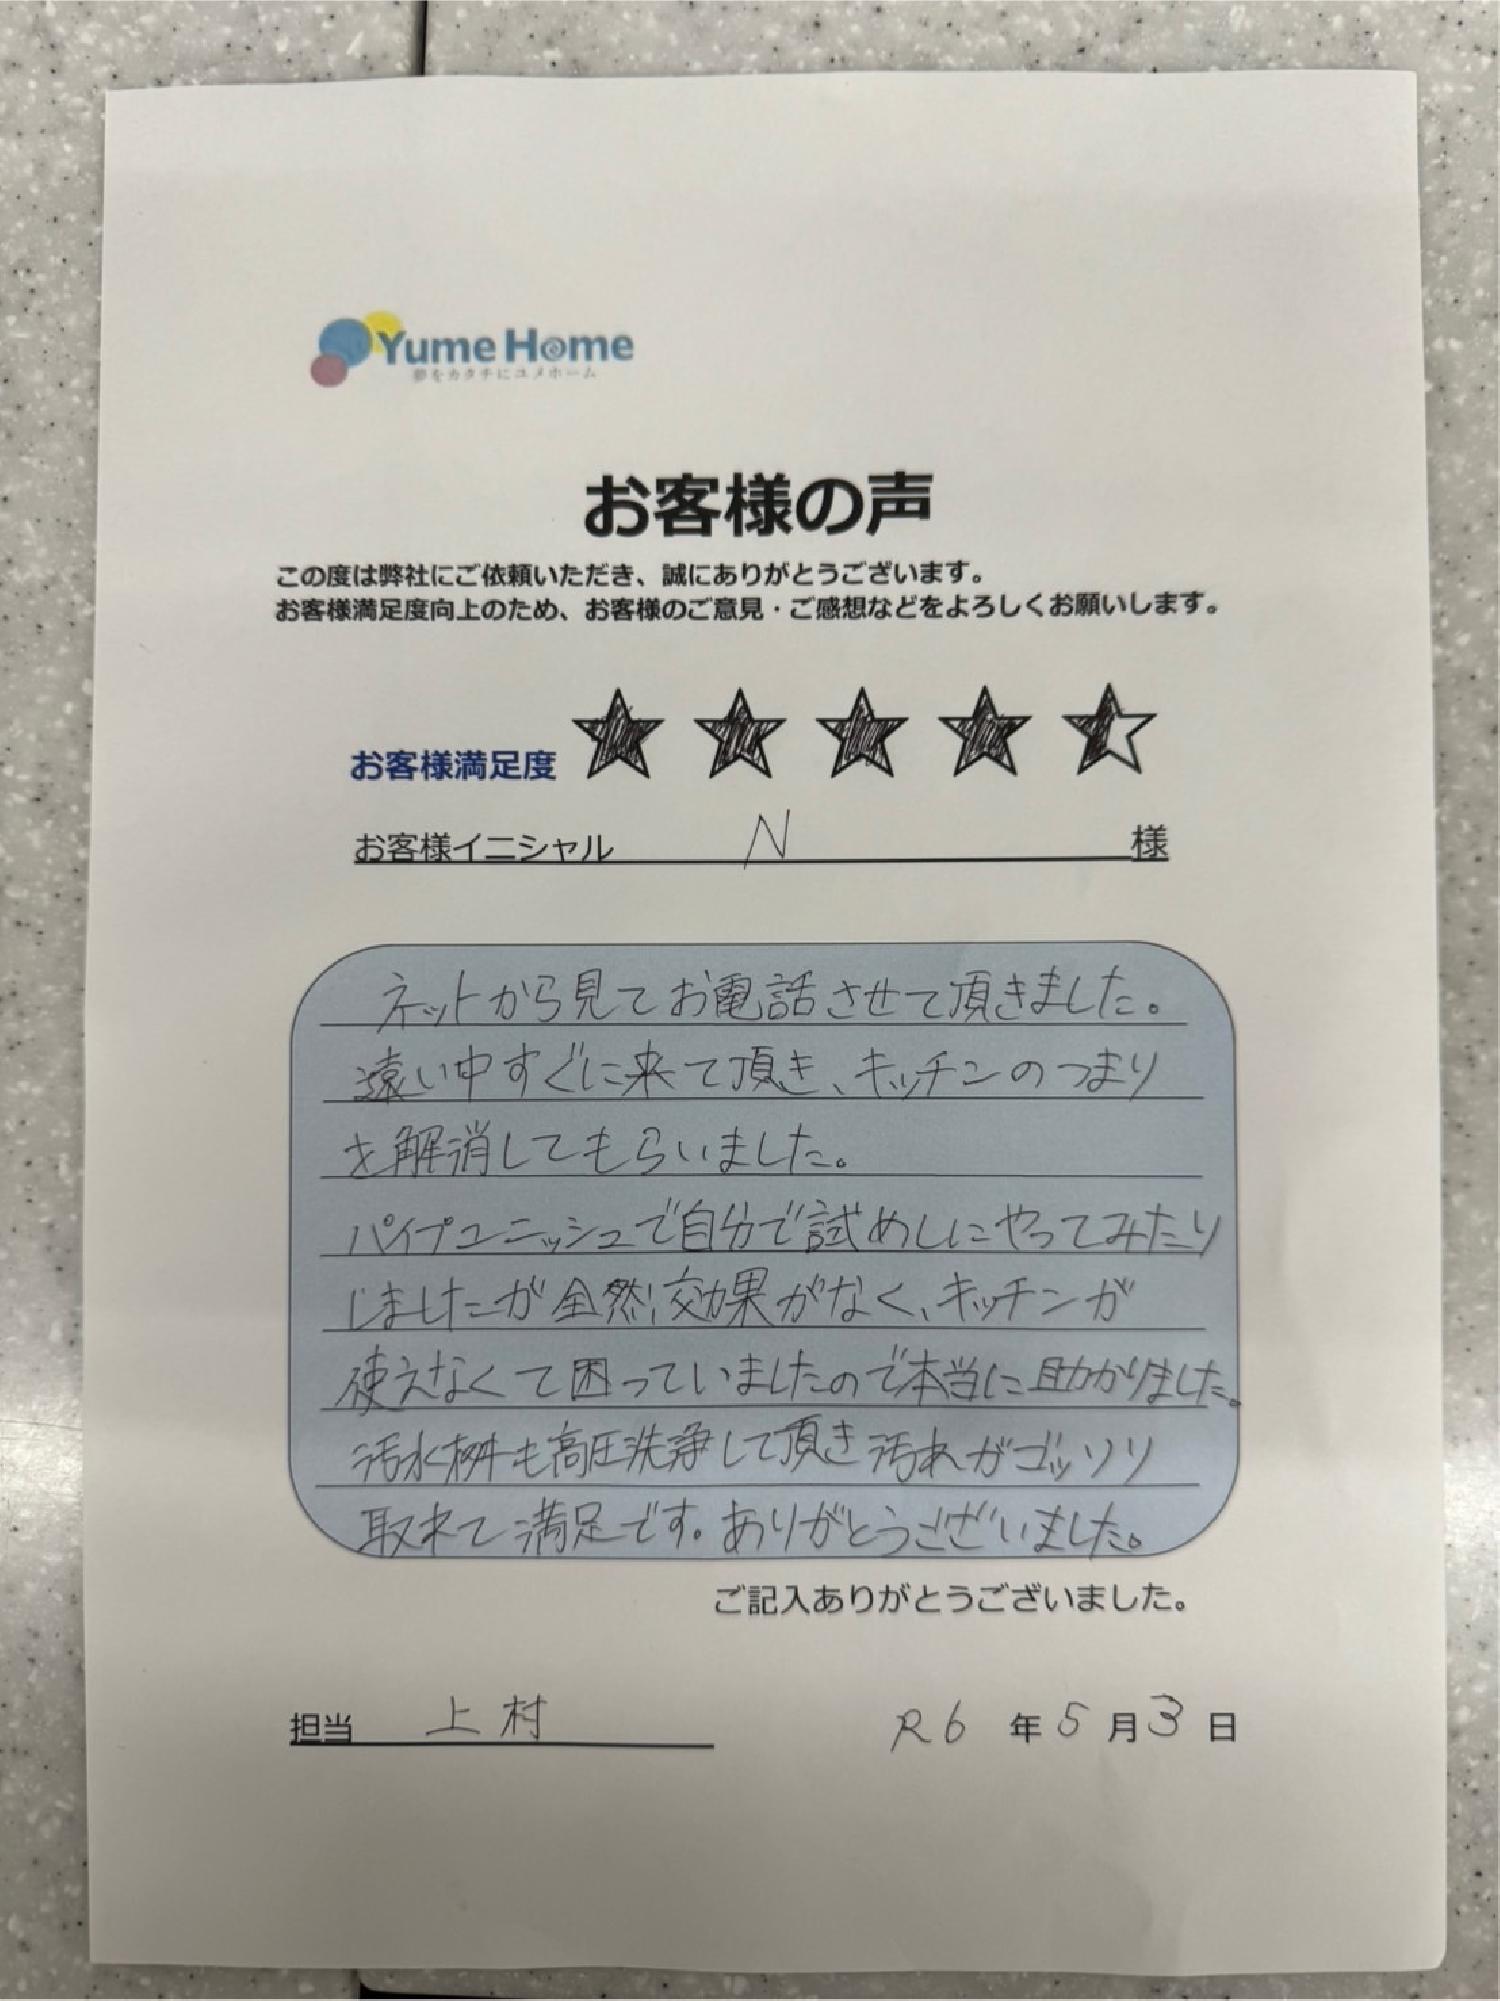 Yume Home
夢をカタチにユメホーム
お客様の声
この度は弊社にご依頼いただき、誠にありがとうございます。
お客様満足度向上のため、お客様のご意見・ご感想などをよろしくお願いします。
お客様満足度 ★★★★
お客様イニシャル N 様
ネットから見てお電話させて頂きました。
遠い中すぐに来て頂き、キッチンのつまり
を解消してもらいました。
パイプユニッシュで自分で試めしにやってみたり
しましたが全然効果がなく、キッチンが
使えなくて困っていましたので本当に助かりました。
汚水桝も高圧洗浄して頂き汚れがゴッソリ
取れて満足です。ありがとうございました。
ご記入ありがとうございました。
担当 上村 R6年5月3日